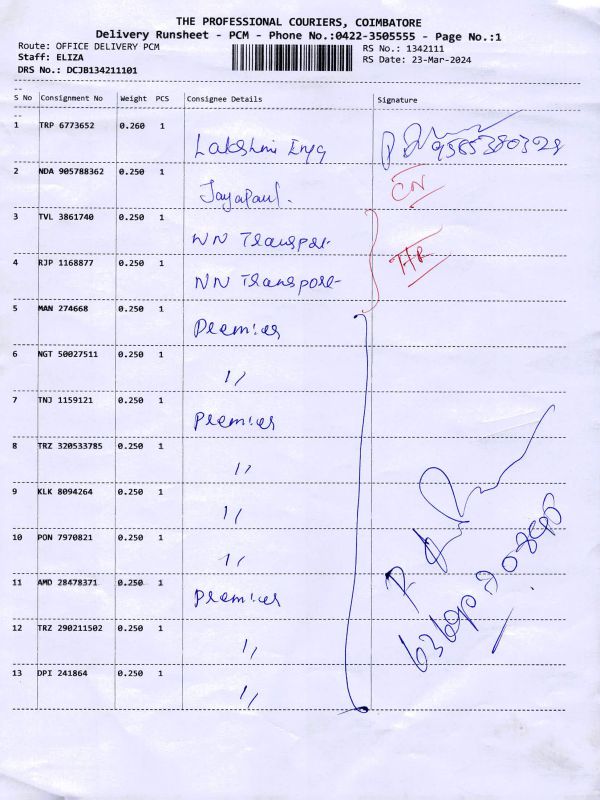 THE PROFESSIONAL COURIERS, COIMBATORE
Delivery Runsheet - PCM - Phone No.:0422-3505555 - Page No.:1
Route: OFFICE DELIVERY PCM RS No.: 1342111
Staff: ELIZA RS Date: 23-Mar-2024
DRS No.: DCJB134211101
S No Consignment No Weight PCS Consignee Details Signature
1 TRP 6773652 0.260 1
Lakshmi Engg 9585380329
2 NDA 905788362 0.250 1
Jayapaul. CN
3 TVL 3861740 0.250 1
NN Transport
4 RJP 1168877 0.250 1
NN Transport
5 MAN 274668 0.250 1
Premier
6 NGT 50027511 0.250 1
1/
7 TNJ 1159121 0.250 1
Premier
8 TRZ 320533785 0.250 1
1/
9 KLK 8094264 0.250 1
1/
10 PON 7970821 0.250 1
1/
11 AMD 28478371 0.250 1
Premier
12 TRZ 290211502 0.250 1
1/
13 DPI 241864 0.250 1
1/